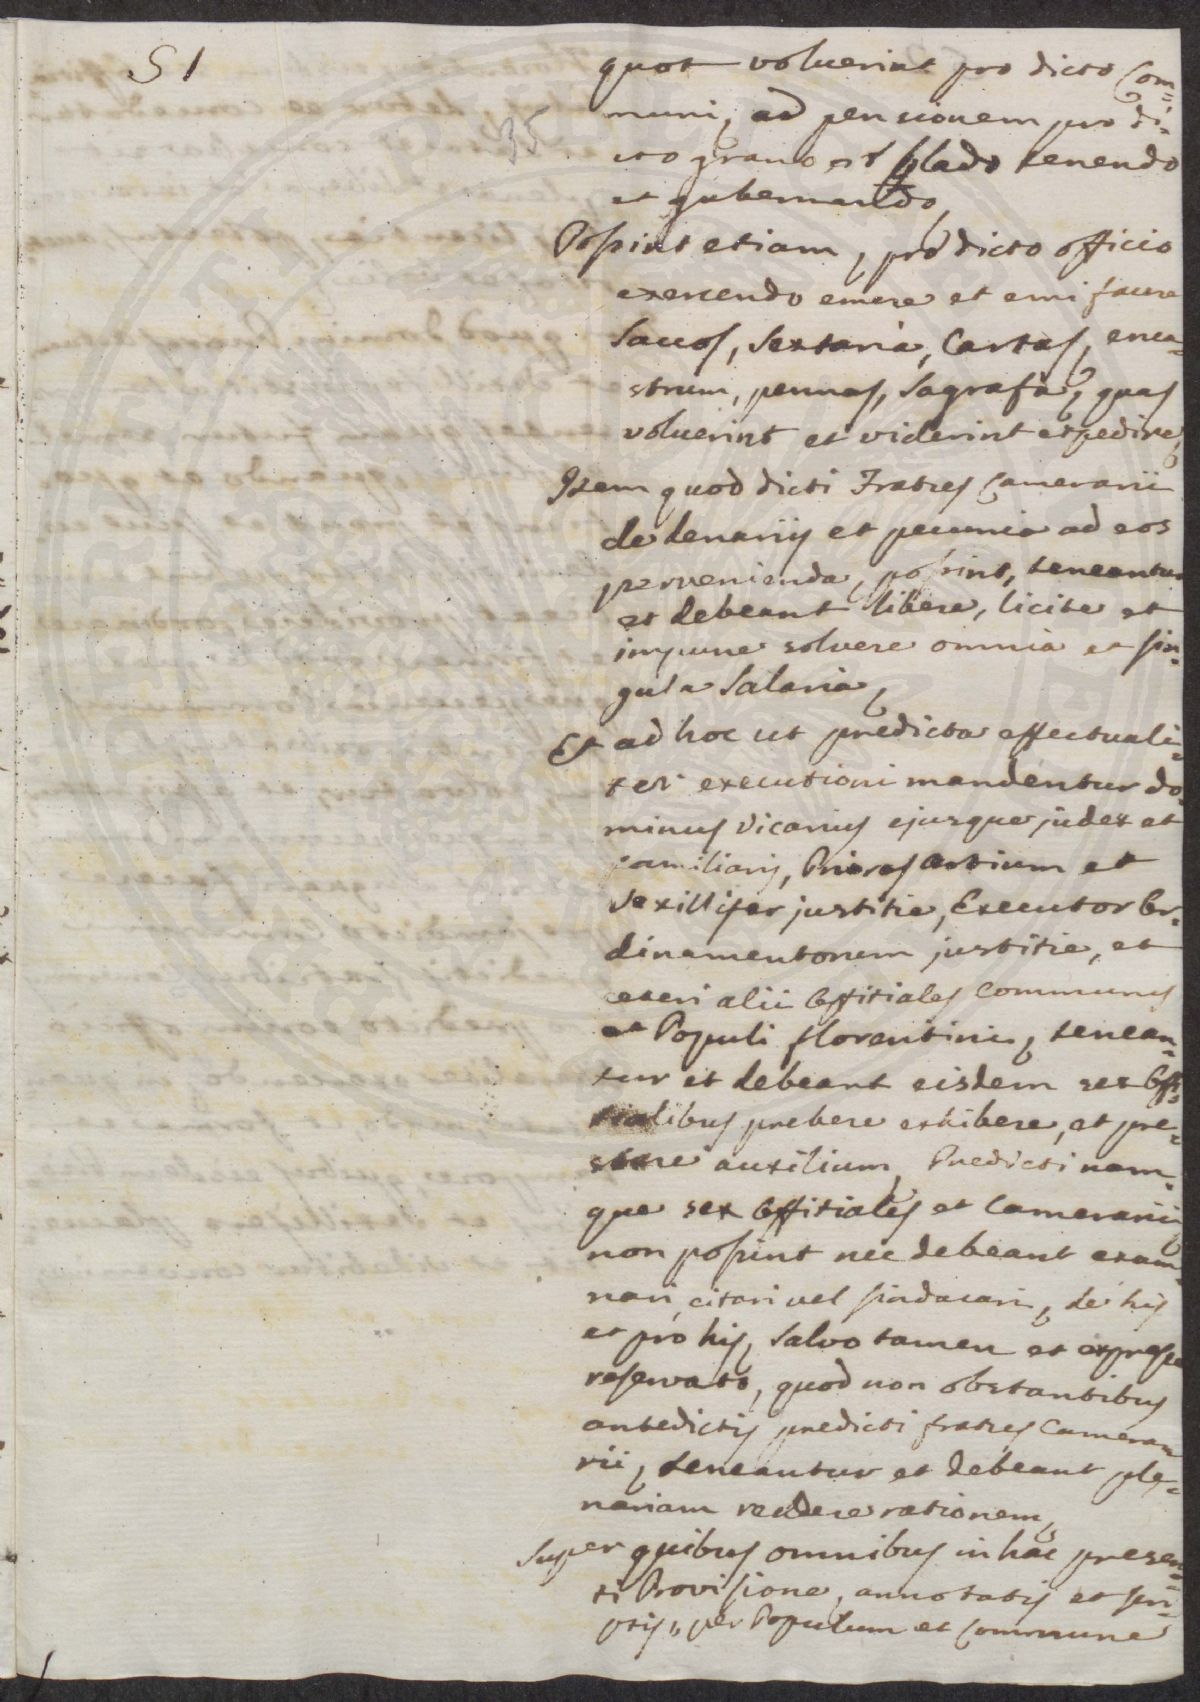 51
35
quot voluerint pro dicto Com=
muni, ad pensionem pro di-
cto grano et blado tenendo
et gubernando,
Possint etiam, pro dicto officio
exercendo emere et emi facere
Saccos, Sextaria, Cartas, enca-
strum, pennas, Sagrafa, quas
voluerint et viderint expedire,
Item quod dicti Fratres Camerarii
de denariis et pecunia ad eos
pervenienda, possint, teneantur
et debeant libere, licite et
impune solvere omnia et sin-
gula Salaria,
Et ad hoc ut predicta effectuali-
ter executioni mandentur do-
minus Vicarius ejusque judex et
familiaris, Priores Artium et
Vexillifer justitie, Executor Or-
dinamentorum justitie, et
ceteri alii Offitiales Communis
et Populi florentini, tenean-
tur et debeant eisdem sex Offi-
tialibus prebere exhibere, et pre-
stare auxilium, Predicti nam-
que sex Offitiales et Camerarii
non possint nec debeant exami-
nari, citari vel sindacari, de his
et pro his, Salvo tamen et expresse
reservato, quod non obstantibus
antedictis predicti fratres Camera-
rii, teneantur et debeant ple-
nariam reddere rationem,
Super quibus omnibus in hac presen=
ti Provisione, annotatis et scri-
ptis, per Populum et Commune